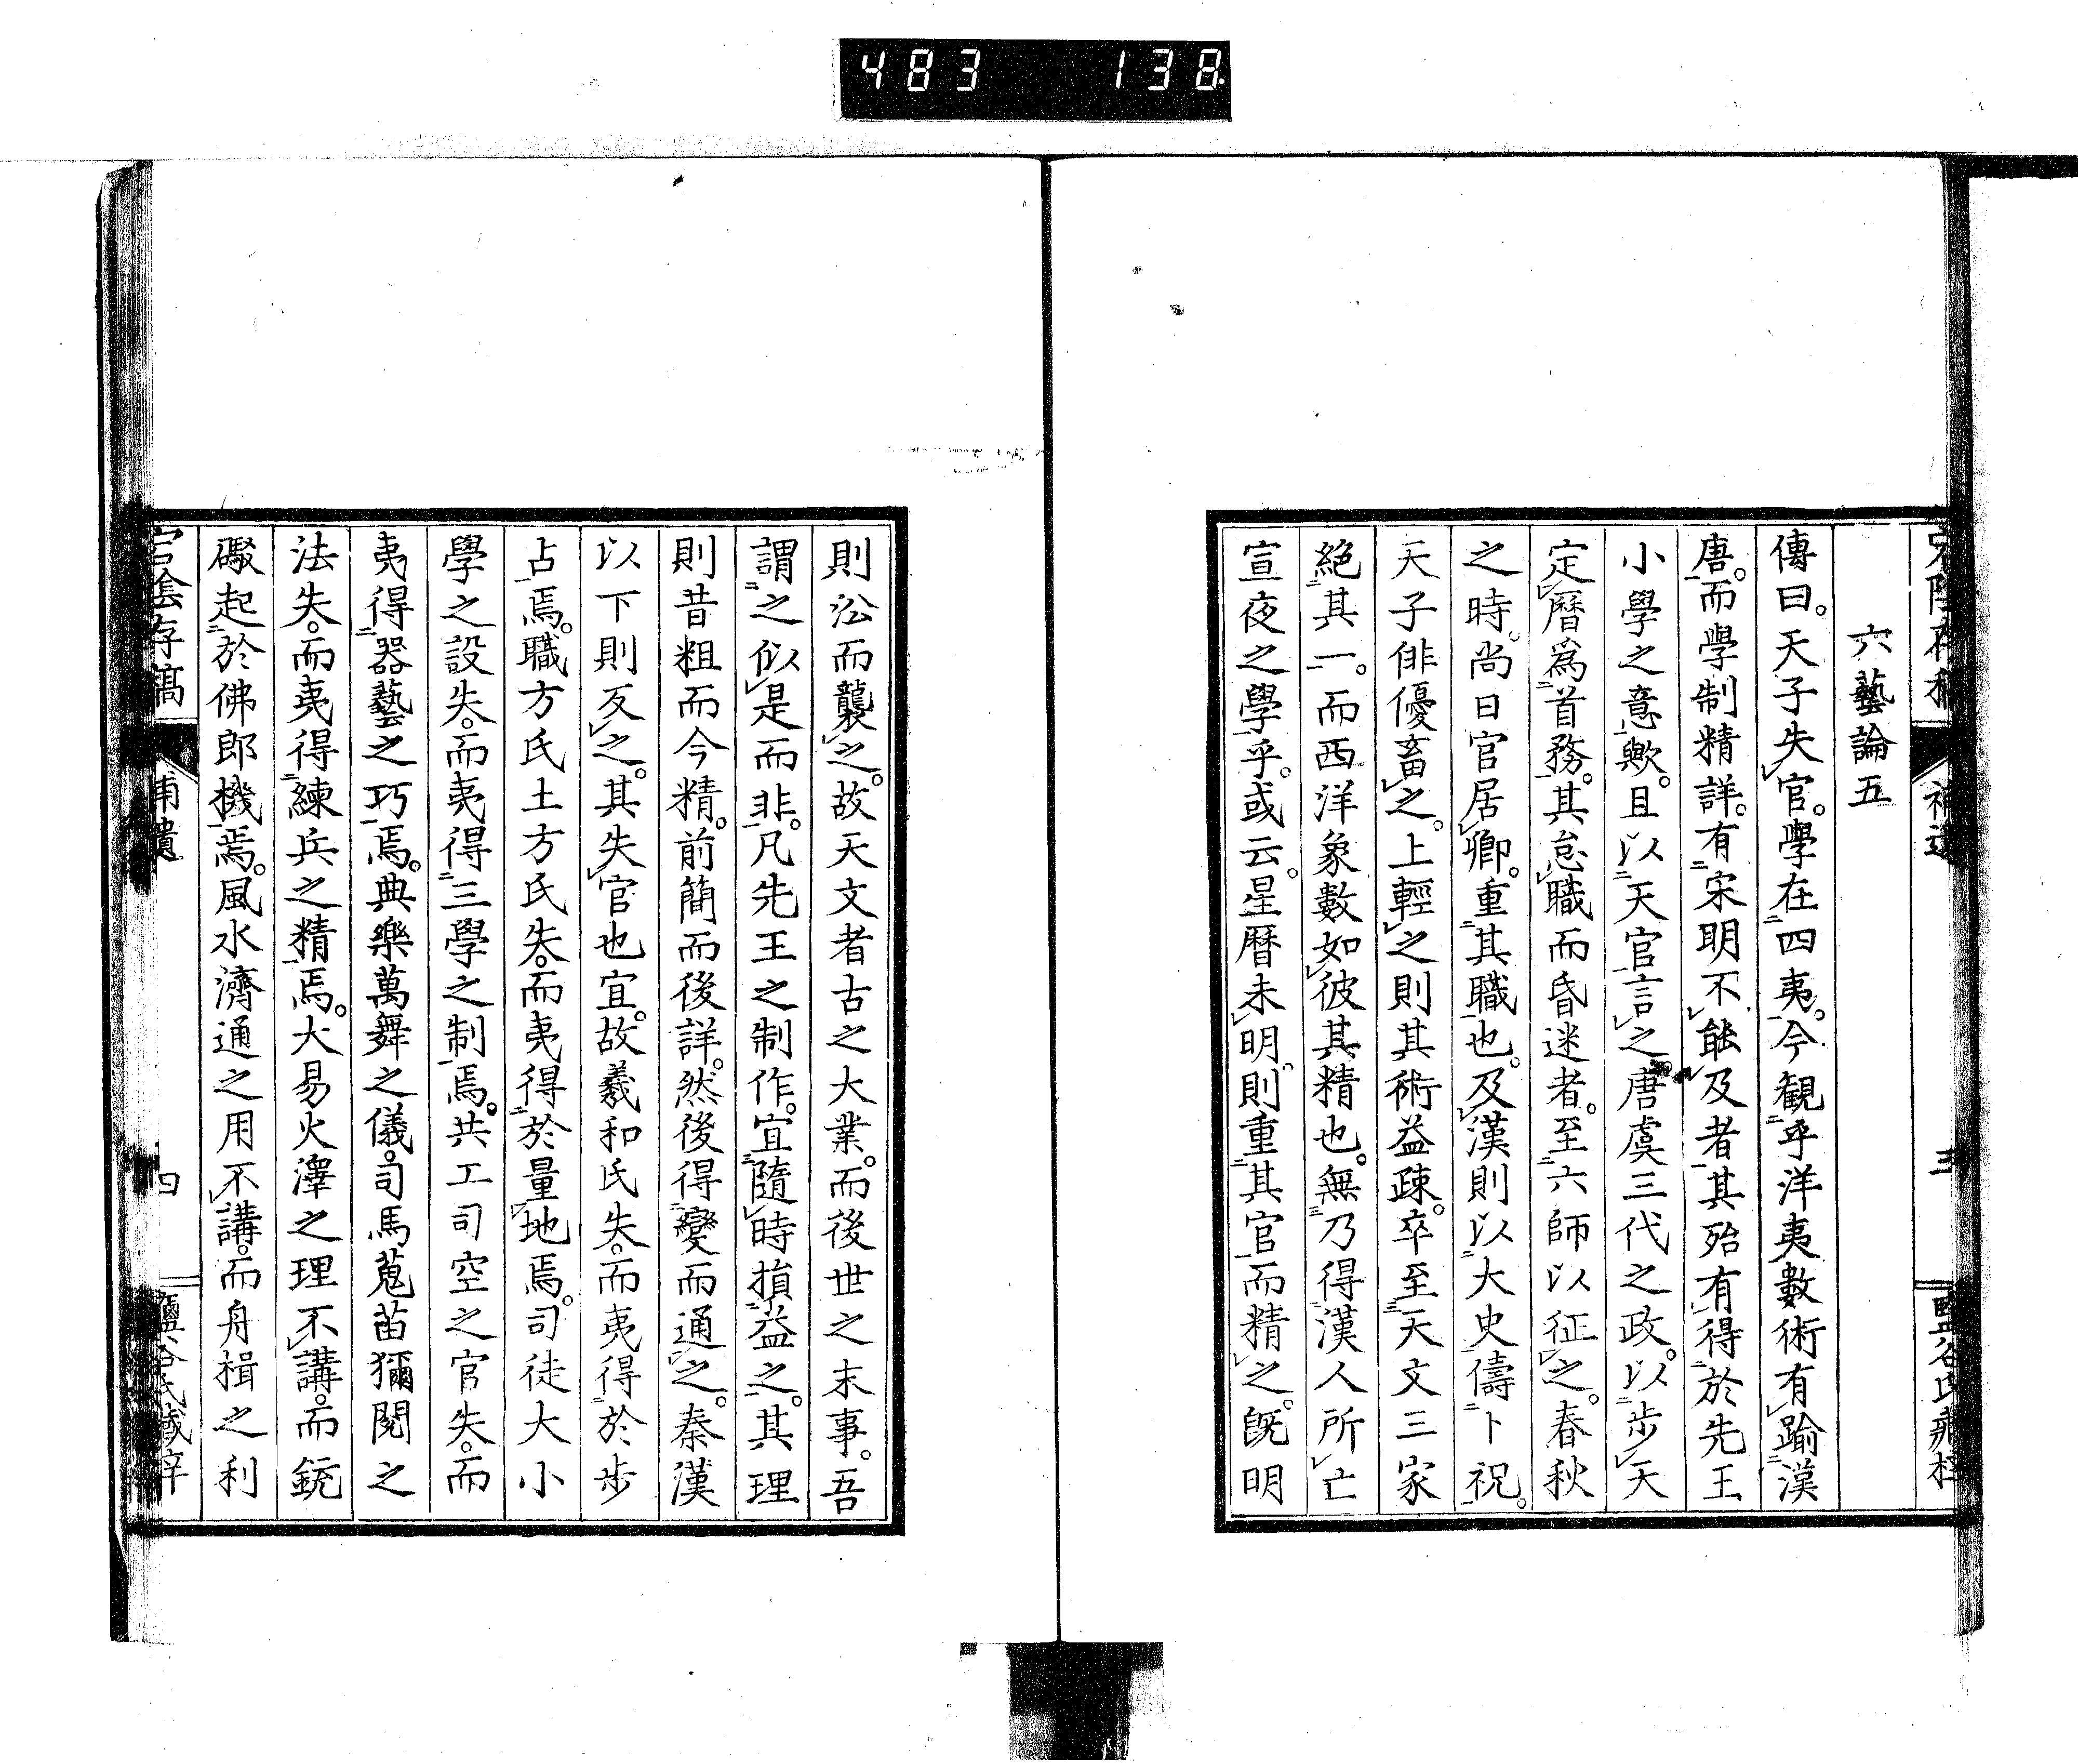 483 138
六藝論五
傳曰。天子失官。學在四夷。今観乎洋夷數術有踰漢
唐。而學制精詳。有宋明不能及者。其殆有得於先王
小學之意歟。且以天官言之。唐虞三代之政。以步天
定曆為首務。其怠職而昏迷者。至六師以征之。春秋
之時。尚日官居卿。重其職也。及漢則以大史儔卜祝。
天子俳優畜之。上輕之則其術益疎。卒至天文三家
絕其一。而西洋象數如彼其精也。無乃得漢人所亡
宣夜之學乎。或云。星曆未明。則重其官而精之。既明
則訟而襲之。故天文者古之大業。而後世之末事。吾
謂之似是而非。凡先王之制作。宜隨時損益之。其理
則昔粗而今精。前簡而後詳。然後得變而通之。秦漢
以下則反之。其失官也宜。故羲和氏失。而夷得於步
占焉。職方氏土方氏失。而夷得於量地焉。司徒大小
學之設失。而夷得三學之制焉。共工司空之官失。而
夷得器藝之巧焉。典樂萬舞之儀。司馬蒐苗獮閱之
法失。而夷得練兵之精焉。大易火澤之理不講。而銃
礮起於佛郎機焉。風水濟通之用不講。而舟楫之利
宕陰存稿
補遺
四